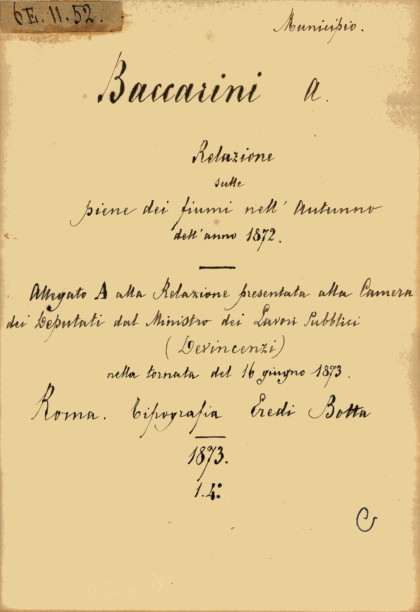 6E.11.52.
Municipio.
Baccarini A.
Relazione
sulle
piene dei fiumi nell' Autunno
dell'anno 1872.
Allegato A alla Relazione presentata alla Camera
dei Deputati dal Ministro dei Lavori Pubblici
(Devincenzi)
nella tornata del 16 giugno 1873.
Roma. Tipografia Eredi Botta
1873.
1.4°.
C